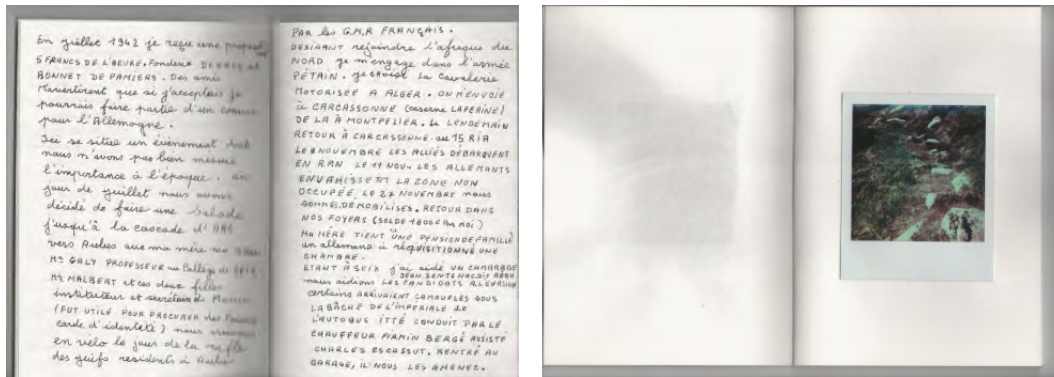 En juillet 1942 je reçu une
5 FRANCS DE L'HEURE. Fonderie
BONNET DE PAMIERS. Des amis
M'avertirent que si j'acceptais je
pourrais faire partie d'un convoi
pour l'Allemagne.
Ici se situe un évènement dont
nous n'avons pas bien mesuré
l'importance à l'époque. un
jour de juillet nous avons
décidé de faire une balade
jusqu'à la cascade d'
vers Aulus avec ma mère ma
Mr GALY PROFESSEUR au Collège de
Mr MALBERT et ces deux filles
instituteur et secrétaire de Mairie
(FUT UTILE POUR PROCURER des
carte d'identeté) nous
en vélo le jour de la rafle
des juifs residents à Aulus
PAR les G.M.R FRANÇAIS.
DESIRANT rejoindre l'afrique du
NORD je m'engage dans l'armée
PETAIN. je choisi La Cavalerie
MOTORISÉE A ALGER. ON M'ENVOIE
à CARCASSONNE (caserne LAPERINE)
DE LÀ À MONTPELIER. Le LENDEMAIN
RETOUR À CARCASSONNE au 15 RIA
LE 8 NOVEMBRE LES ALLIÉS DÉBARQUENT
EN LE 11 NOV.. LES ALLEMANTS
ENVAHISSENT LA ZONE NON
OCCUPÉE, LE 27 NOVEMBRE nous
SOMMES DEMOBILISES. RETOUR DANS
NOS FOYERS (SOLDE 1800 F
MA MÈRE TIENT UNE PENSION DE FAMILLE
un allemand à réquisitionné UNE
CHAMBRE.
ETANT À SEIX j'ai aidé UN CAMARADE
JEAN SENTENAC DIT
nous aidions LES CANDIDATS A L'EVASION
certains ARRIVAIENT CAMOUFLES SOUS
LA BÂCHE DE L'IMPÉRIALE de
L'AUTOBUS ITTÉ CONDUIT PAR LE
CHAUFFEUR FIRMIN BERGÉ ASSISTÉ
CHARLES ESCASSUT. RENTRÉ AU
GARAGE, IL NOUS LES AMENEZ.